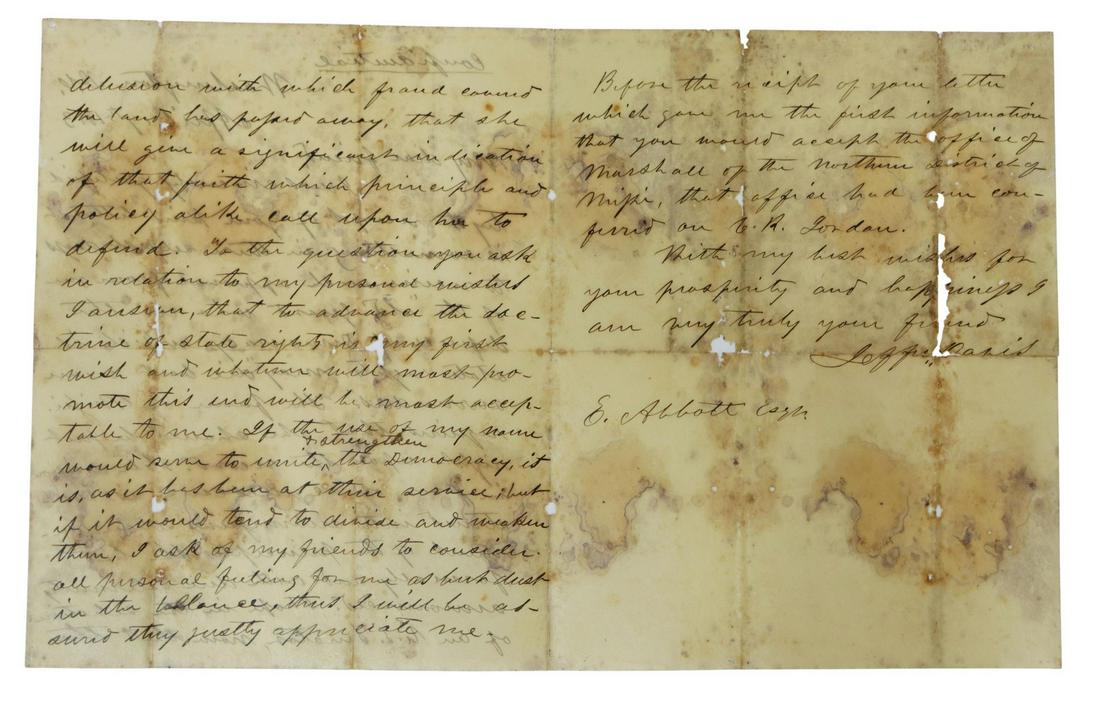 delusion with which fraud covered
the land has passed away, that she
will give a significant indication
of that faith which principle and
policy alike call upon her to
defend. To the question you ask
in relation to my personal wishes
I answer, that to advance the doc-
trine of state rights is my first
wish and whatever will most pro-
mote this end will be most accep-
table to me. If the use of my name
& strengthen
would serve to unite, the Democracy, it
is, as it has been at their service; but
if it would tend to divide and weaken
them, I ask of my friends to consider
all personal feeling for me as but dust
in the ballance, thus I will be as-
sured they justly appreciate me.
Before the receipt of your letter
which gave me the first information
that you would accept the office of
Marshall of the Northern district of
Missi, that office had been con-
ferred on E. R. Jordan.
With my best wishes for
your prosperity and happiness I
am very truly your friend
Jeffn. Davis
E. Abbott Esqr.
Confidential